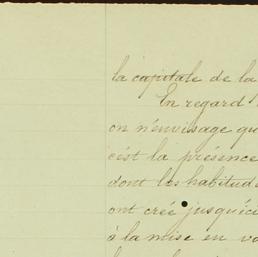 la capitale de la
En regard
on n'envisage qu
c'est la présence
dont les habitud
ont créé jusqu'ic
à la mise en va